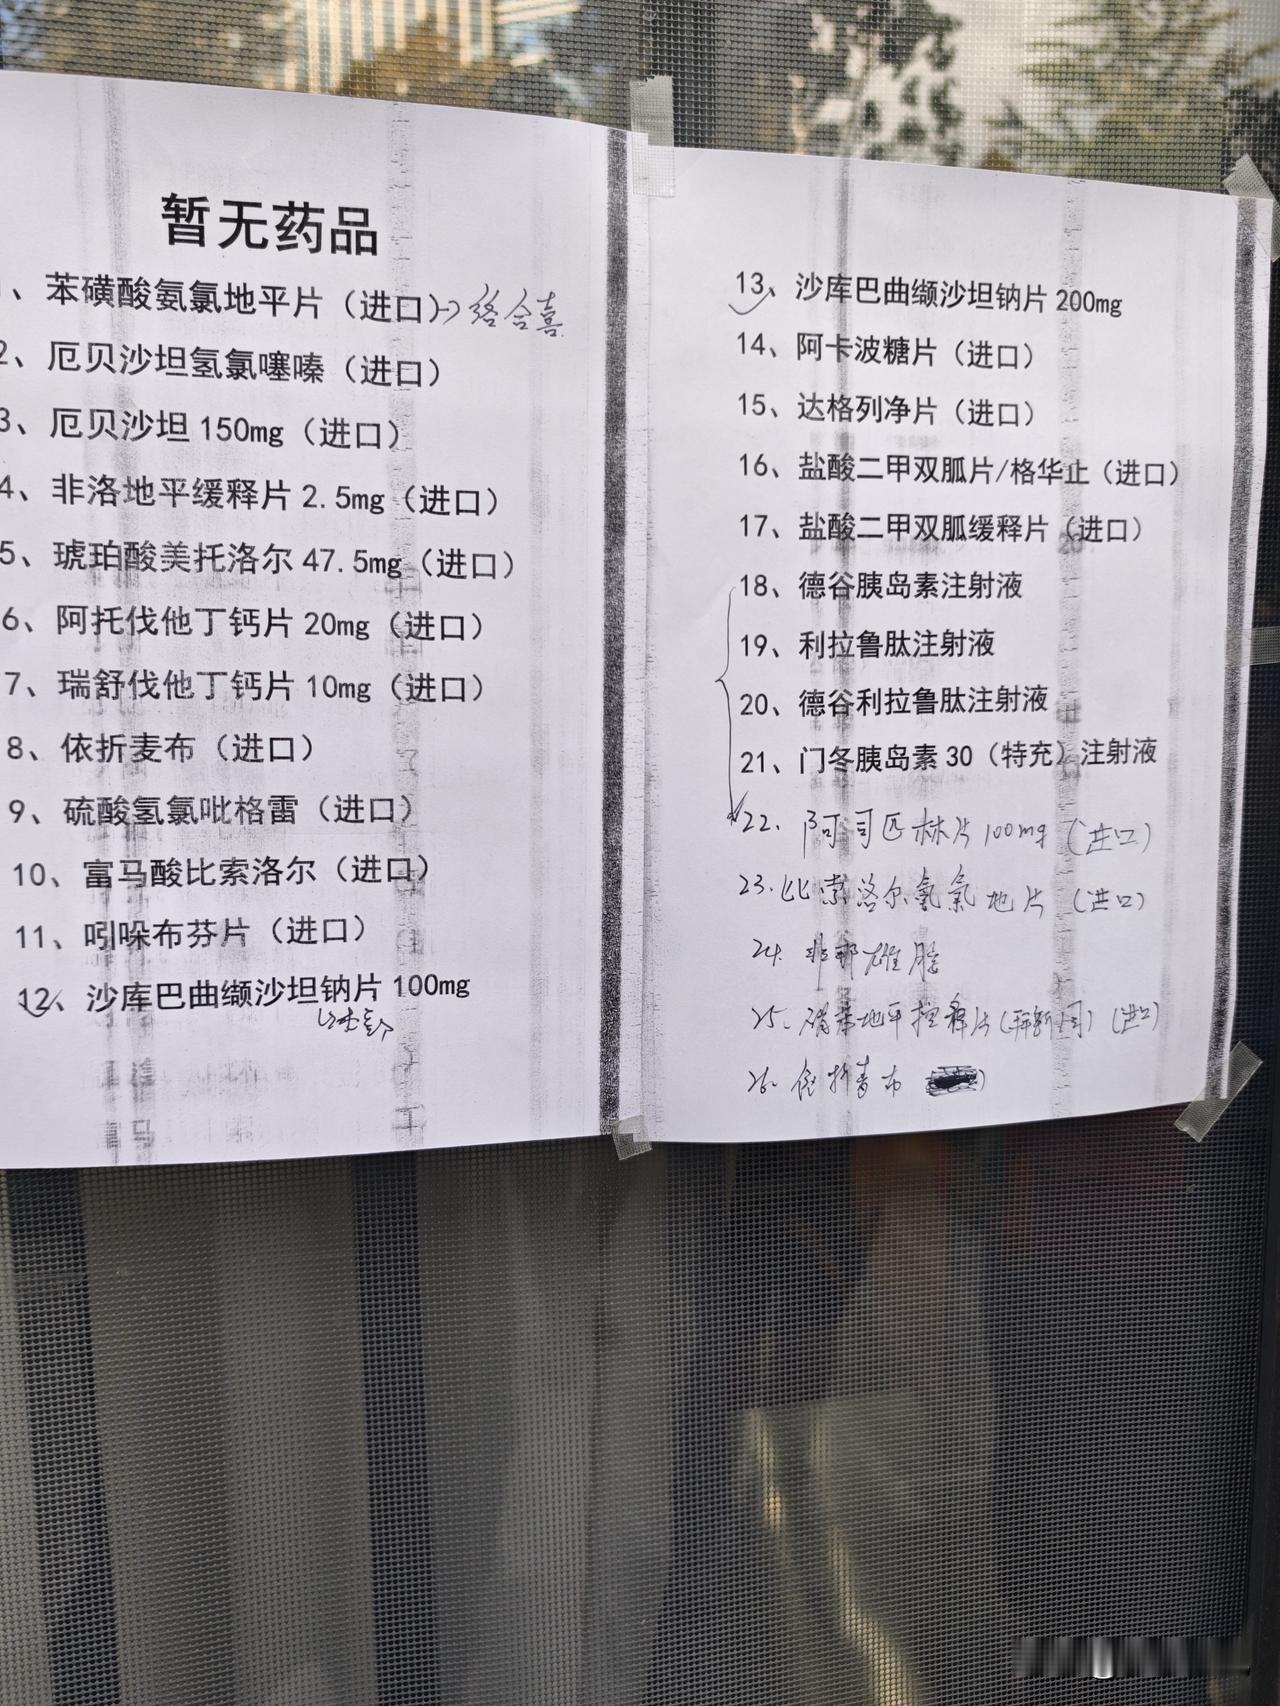 暂无药品
、苯磺酸氨氯地平片（进口）→络合喜
2、厄贝沙坦氢氯噻嗪（进口）
3、厄贝沙坦 150mg（进口）
4、非洛地平缓释片 2.5mg（进口）
5、琥珀酸美托洛尔 47.5mg（进口）
6、阿托伐他丁钙片 20mg（进口）
7、瑞舒伐他丁钙片 10mg（进口）
8、依折麦布（进口）
9、硫酸氢氯吡格雷（进口）
10、富马酸比索洛尔（进口）
11、吲哚布芬片（进口）
12、沙库巴曲缬沙坦钠片 100mg
13、沙库巴曲缬沙坦钠片 200mg
14、阿卡波糖片（进口）
15、达格列净片（进口）
16、盐酸二甲双胍片/格华止（进口）
17、盐酸二甲双胍缓释片（进口）
18、德谷胰岛素注射液
19、利拉鲁肽注射液
20、德谷利拉鲁肽注射液
21、门冬胰岛素 30（特充）注射液
22. 阿司匹林片 100mg（进口）
23. 比索洛尔氨氯地片（进口）
24. 非那雄胺
25. 硝苯地平控释片（拜新同）（进口）
26. 依折麦布